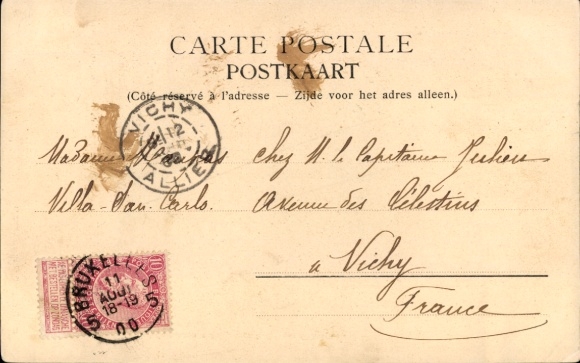 CARTE POSTALE
POSTKAART
(Côté réservé à l'adresse — Zijde voor het adres alleen.)
VICHY
12
ALLIER
Madame chez M. le Capitaine
Villa-San-Carlo. Avenue des Célestins
à Vichy
France
BRUXELLES 5
11
AOUT
18-19
00
5
10